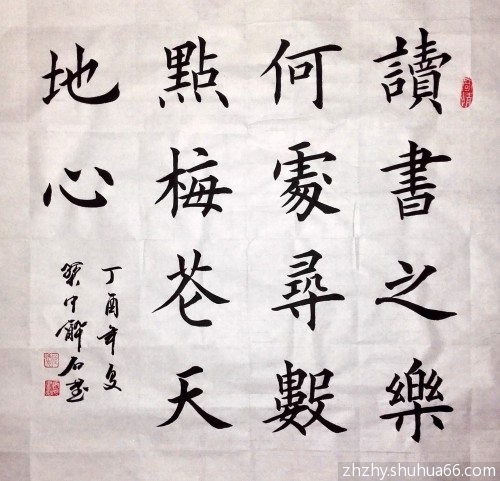 讀書之樂
何處尋數
點梅花天
地心
丁酉年夏
石
zhzhy.shuhua66.com